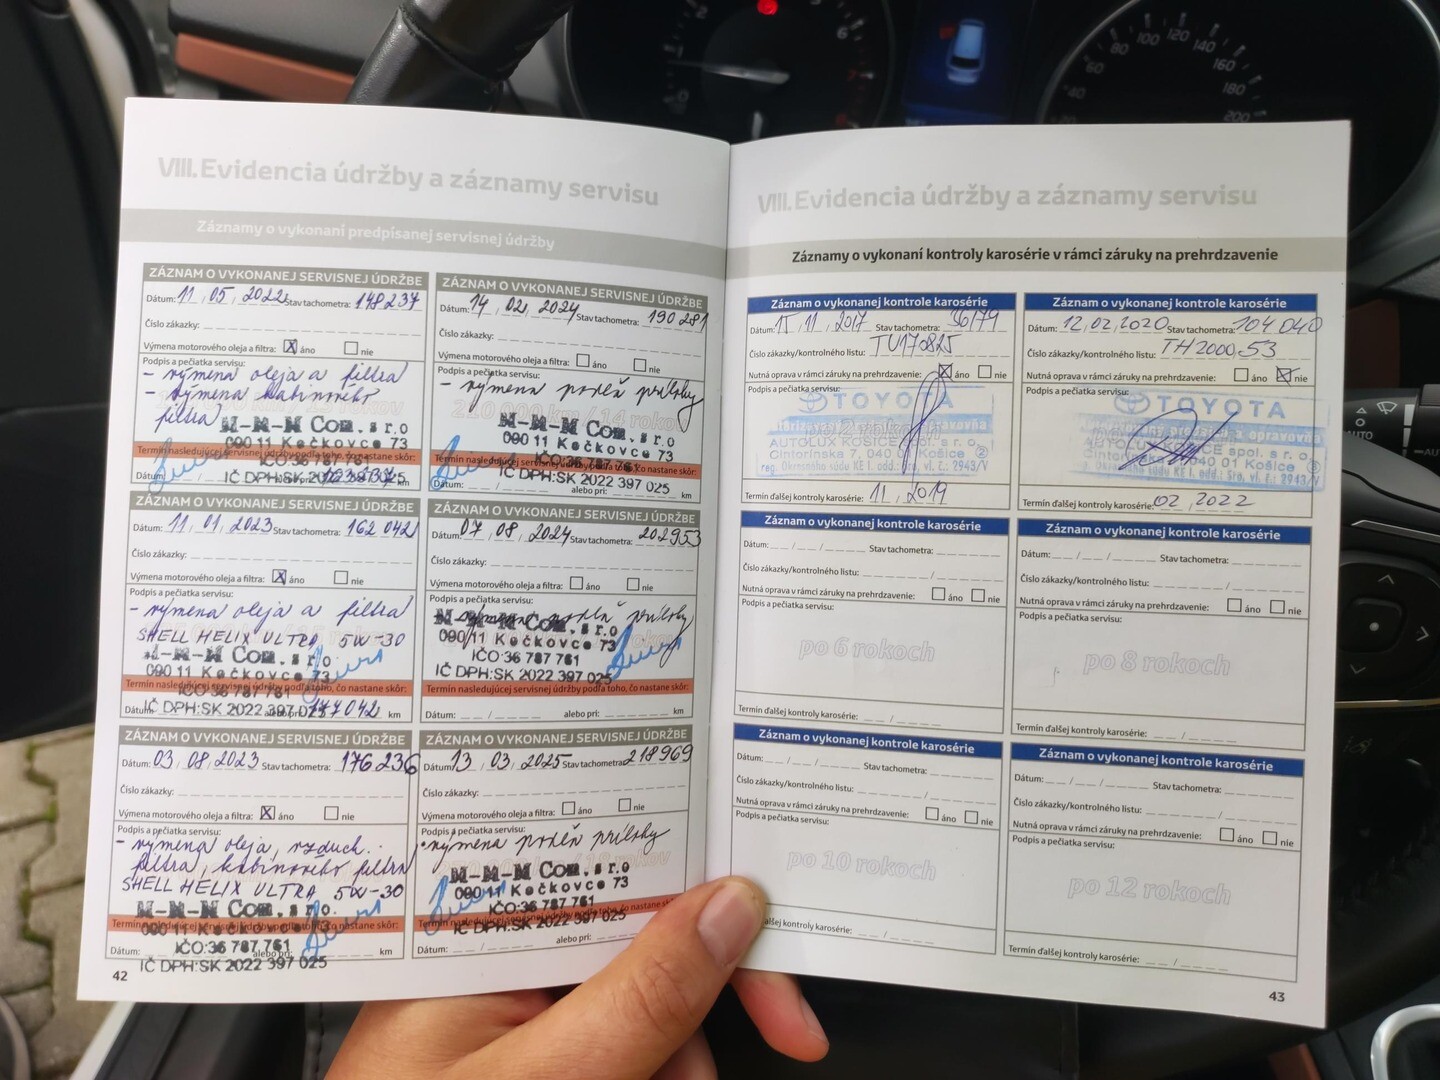 VIII. Evidencia údržby a záznamy servisu
Záznamy o vykonaní predpísanej servisnej údržby
ZÁZNAM O VYKONANEJ SERVISNEJ ÚDRŽBE
Dátum: 11, 05, 2022 Stav tachometra: 148237
Číslo zákazky:
Výmena motorového oleja a filtra: X áno nie
Podpis a pečiatka servisu:
- výmena oleja a filtra
- výmena kabinového
filtra
M-M-M Com. s r.o
090 11 Kečkovce 73
Termín nasledujúcej servisnej údržby podľa toho, čo nastane skôr:
IČO:36 787 761
IČ DPH:SK 2022 397 025
Dátum:
ZÁZNAM O VYKONANEJ SERVISNEJ ÚDRŽBE
Dátum: 11, 01, 2023 Stav tachometra: 162 042
Číslo zákazky:
Výmena motorového oleja a filtra: X áno nie
Podpis a pečiatka servisu:
- výmena oleja a filtra
SHELL HELIX ULTRA 5W-30
M-M-M Com. s r.o.
090 11 Kečkovce 73
IČO:36 787 761
Termín nasledujúcej servisnej údržby podľa toho, čo nastane skôr:
IČ DPH:SK 2022 397 025
Dátum: alebo pri: 177042 km
ZÁZNAM O VYKONANEJ SERVISNEJ ÚDRŽBE
Dátum: 03, 08, 2023 Stav tachometra: 176 236
Číslo zákazky:
Výmena motorového oleja a filtra: X áno nie
Podpis a pečiatka servisu:
- výmena oleja, vzduch.
filtra, kabinového filtra
SHELL HELIX ULTRA 5W-30
M-M-M Com. s r.o.
090 11 Kečkovce 73
Termín nasledujúcej servisnej údržby podľa toho, čo nastane skôr:
IČO:36 787 761
Dátum: alebo pri: km
IČ DPH:SK 2022 397 025
42
ZÁZNAM O VYKONANEJ SERVISNEJ ÚDRŽBE
Dátum: 14, 02, 2024 Stav tachometra: 190 281
Číslo zákazky:
Výmena motorového oleja a filtra: áno nie
Podpis a pečiatka servisu:
- výmena podľa prílohy
M-M-M Com. s r.o
090 11 Kečkovce 73
IČO:36 787 761
Termín nasledujúcej servisnej údržby podľa toho, čo nastane skôr:
IČ DPH:SK 2022 397 025
Dátum: alebo pri: km
ZÁZNAM O VYKONANEJ SERVISNEJ ÚDRŽBE
Dátum: 07, 08, 2024 Stav tachometra: 202953
Číslo zákazky:
Výmena motorového oleja a filtra: áno nie
Podpis a pečiatka servisu:
výmena podľa prílohy
M-M-M Com. s r.o
090 11 Kečkovce 73
IČO:36 787 761
IČ DPH:SK 2022 397 025
Termín nasledujúcej servisnej údržby podľa toho, čo nastane skôr:
Dátum: alebo pri: km
ZÁZNAM O VYKONANEJ SERVISNEJ ÚDRŽBE
Dátum: 13, 03, 2025 Stav tachometra: 218969
Číslo zákazky:
Výmena motorového oleja a filtra: áno nie
Podpis a pečiatka servisu:
- výmena podľa prílohy
M-M-M Com. s r.o
090 11 Kečkovce 73
Termín nasledujúcej servisnej údržby podľa toho, čo nastane skôr:
IČ DPH:SK 2022 397 025
Dátum: alebo pri:
VIII. Evidencia údržby a záznamy servisu
Záznamy o vykonaní kontroly karosérie v rámci záruky na prehrdzavenie
Záznam o vykonanej kontrole karosérie
Dátum: 15, 11, 2017 Stav tachometra: 36179
Číslo zákazky/kontrolného listu: TU170825
Nutná oprava v rámci záruky na prehrdzavenie: X áno nie
Podpis a pečiatka servisu:
TOYOTA
AUTOLUX KOŠICE spol. s r. o.
Cintorínska 7, 040 01 Košice 2
reg. Okresného súdu KE I. odd.: Sro, vl. č.: 2943/V
Termín ďalšej kontroly karosérie: 11, 2019
Záznam o vykonanej kontrole karosérie
Dátum: 12, 02, 2020 Stav tachometra: 104 040
Číslo zákazky/kontrolného listu: TH2000,53
Nutná oprava v rámci záruky na prehrdzavenie: áno X nie
Podpis a pečiatka servisu:
TOYOTA
predajca a opravovňa
AUTOLUX KOŠICE spol. s r. o.
Cintorínska 7, 040 01 Košice 3
reg. Okresného súdu KE I. odd.: Sro, vl. č.: 2943/V
Termín ďalšej kontroly karosérie: 02, 2022
Záznam o vykonanej kontrole karosérie
Dátum: Stav tachometra:
Číslo zákazky/kontrolného listu:
Nutná oprava v rámci záruky na prehrdzavenie: áno nie
Podpis a pečiatka servisu:
po 6 rokoch
Termín ďalšej kontroly karosérie:
Záznam o vykonanej kontrole karosérie
Dátum: Stav tachometra:
Číslo zákazky/kontrolného listu:
Nutná oprava v rámci záruky na prehrdzavenie: áno nie
Podpis a pečiatka servisu:
po 8 rokoch
Termín ďalšej kontroly karosérie:
Záznam o vykonanej kontrole karosérie
Dátum: Stav tachometra:
Číslo zákazky/kontrolného listu:
Nutná oprava v rámci záruky na prehrdzavenie: áno nie
Podpis a pečiatka servisu:
po 10 rokoch
ďalšej kontroly karosérie:
Záznam o vykonanej kontrole karosérie
Dátum: Stav tachometra:
Číslo zákazky/kontrolného listu:
Nutná oprava v rámci záruky na prehrdzavenie: áno nie
Podpis a pečiatka servisu:
po 12 rokoch
Termín ďalšej kontroly karosérie:
43